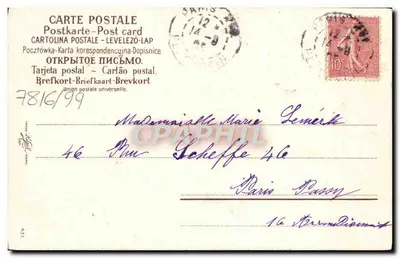 CARTE POSTALE
Postkarte-Post card
CARTOLINA POSTALE-LEVELEZŐ-LAP
Pocztówka-Karta korespondencyjna-Dopisnice
ОТКРЫТОЕ ПИСЬМО.
Tarjeta postal - Cartão postal.
Brefkort-Briefkaart-Brevkort
Union postale universelle.
7816/99
PARIS
12
14-9
PARIS
12
14-9
10
Mademoiselle Marie
46 Rue Scheffe 46
Paris Passy
16